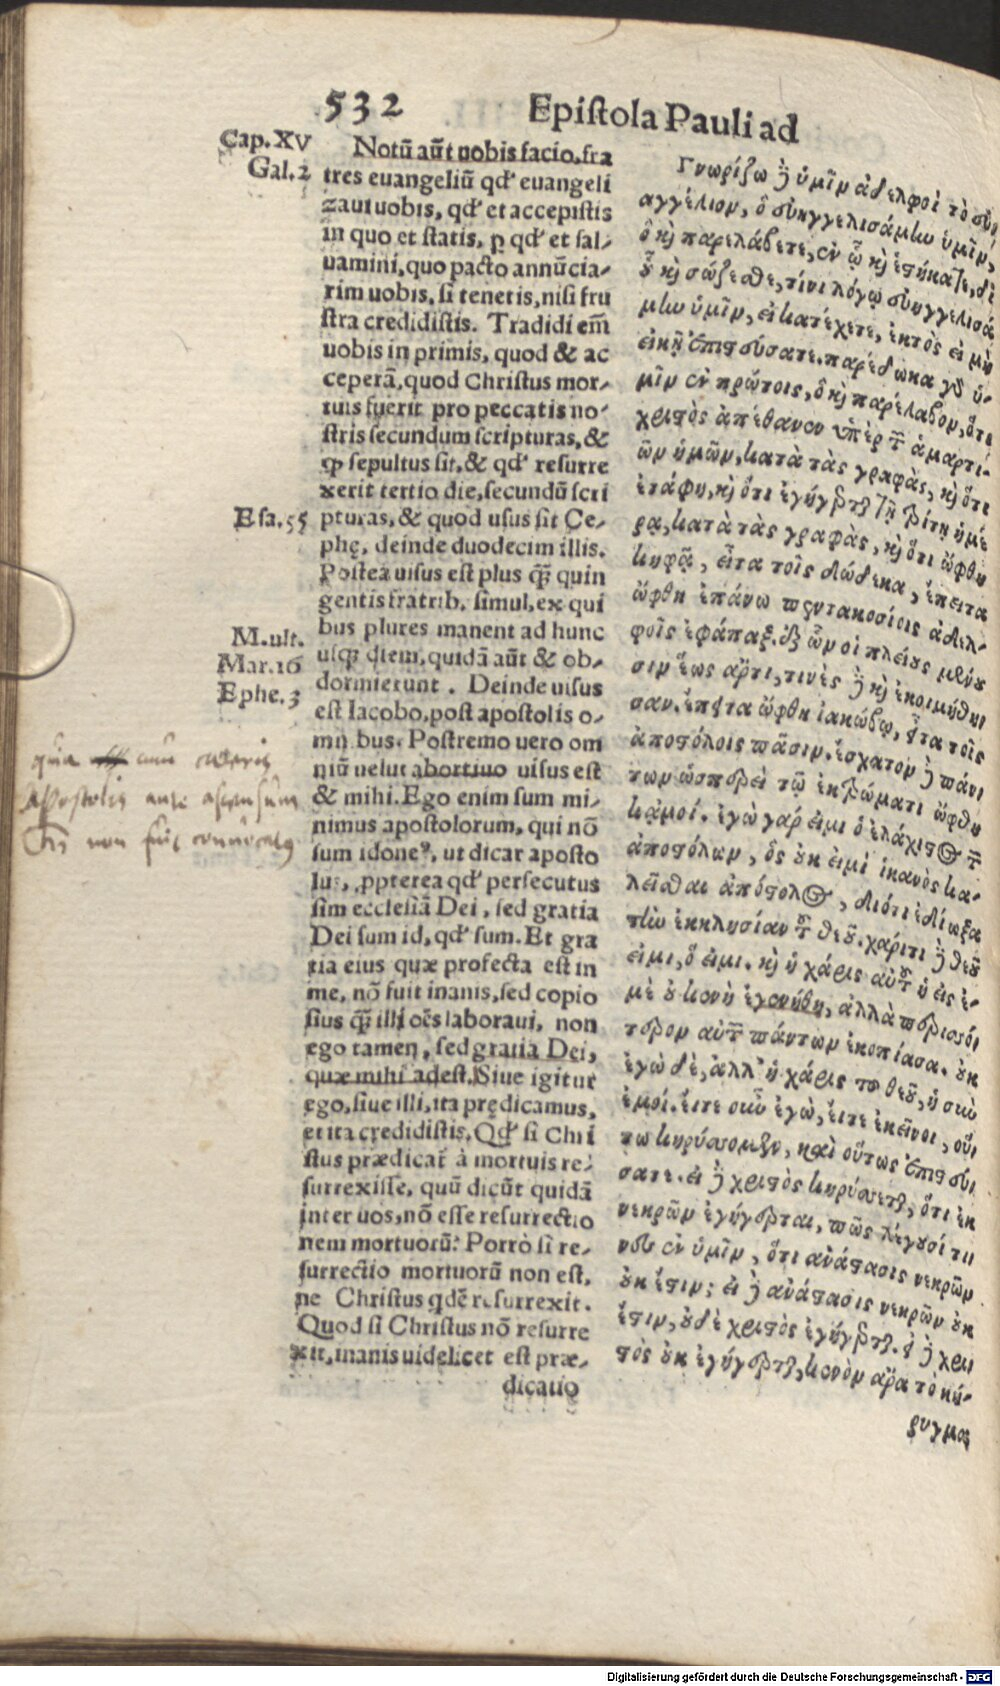 532
Epistola Pauli ad
Cap. XV
Gal. 2
Notũ aũt uobis facio, fra
tres euangeliũ qđ euangeli
zaui uobis, qđ et accepistis
in quo et statis, ꝑ qđ et sal-
uamini, quo pacto annũcia-
rim uobis, si tenetis, nisi fru
stra credidistis. Tradidi em̃
uobis in primis, quod & ac
ceperã, quod Christus mor-
tuus fuerit pro peccatis no-
stris secundum scripturas, &
ꝙ sepultus sit, & qđ resurre
xerit tertio die, secundũ scri
Esa. 55
pturas, & quod uisus sit Ce-
phę, deinde duodecim illis.
Postea uisus est plus ꝙ̃ quin
gentis fratrib. simul, ex qui
M. ult.
bus plures manent ad hunc
Mar. 16
usꝙ diem, quidã aũt & ob-
Ephe. 3
dormierunt. Deinde uisus
est Iacobo, post apostolis o-
mnibus. Postremo uero om
niũ uelut abortiuo uisus est
& mihi. Ego enim sum mi-
nimus apostolorum, qui nõ
sum idoneꝰ, ut dicar aposto
lus, ꝓpterea qđ persecutus
sim ecclesiã Dei, sed gratia
Dei sum id, qđ sum. Et gra
tia eius quæ profecta est in
me, nõ fuit inanis, sed copio
sius ꝙ̃ illi oẽs laboraui, non
ego tamen, sed gratia Dei,
quæ mihi adest. Siue igitur
ego, siue illi, ita prędicamus,
et ita credidistis. Qđ si Chri
stus prædicat̃ à mortuis re-
surrexisse, quũ dicũt quidã
inter uos, nõ esse resurrectio
nem mortuorũ? Porrò si re-
surrectio mortuorũ non est,
ne Christus qđẽ resurrexit.
Quod si Christus nõ resurre
xit, inanis uidelicet est præ-
dicatio
quia cum ceteris
apostolis ante ascensum
non fuit
Γνωρίζω δὲ ὑμῖν ἀδελφοὶ τὸ εὐα
αγγέλιον, ὃ εὐηγγελισάμην ὑμῖν,
ὃ καὶ παρελάβετε, ἐν ᾧ καὶ ἑστήκατε, δι
οὗ καὶ σώζεσθε, τίνι λόγῳ εὐηγγελισά
μην ὑμῖν, εἰ κατέχετε, ἐκτὸς εἰ μὴ
εἰκῆ ἐπιστεύσατε. παρέδωκα γὰρ ὑ-
μῖν ἐν πρώτοις, ὃ καὶ παρέλαβον, ὅτι
χριστὸς ἀπέθανεν ὑπὲρ τῶν ἁμαρτι-
ῶν ἡμῶν, κατὰ τὰς γραφὰς, καὶ ὅτι
ἐτάφη, καὶ ὅτι ἐγήγερται τῇ τρίτῃ ἡμέ
ρᾳ, κατὰ τὰς γραφὰς, καὶ ὅτι ὤφθη
κηφᾷ, εἶτα τοῖς δώδεκα, ἔπειτα
ὤφθη ἐπάνω πεντακοσίοις ἀδελ-
φοῖς ἐφάπαξ. ἐξ ὧν οἱ πλείους μένου
σιν ἕως ἄρτι, τινὲς δὲ καὶ ἐκοιμήθη
σαν. ἔπειτα ὤφθη ἰακώβῳ, εἶτα τοῖς
ἀποστόλοις πᾶσιν. ἔσχατον δὲ πάν
των ὡσπερεὶ τῷ ἐκτρώματι ὤφθη
κᾀμοί. ἐγὼ γάρ εἰμι ὁ ἐλάχιστος τῶν
ἀποστόλων, ὃς οὐκ εἰμὶ ἱκανὸς κα-
λεῖσθαι ἀπόστολος, διότι ἐδίωξα
τὴν ἐκκλησίαν τοῦ θεοῦ. χάριτι δὲ θεοῦ
εἰμι, ὅ εἰμι. καὶ ἡ χάρις αὐτοῦ ἡ εἰς ἐ-
μὲ οὐ κενὴ ἐγενήθη, ἀλλὰ περισσό
τερον αὐτῶν πάντων ἐκοπίασα. οὐκ
ἐγὼ δὲ, ἀλλ' ἡ χάρις τοῦ θεοῦ, ἡ σὺν
ἐμοί. εἴτε οὖν ἐγὼ, εἴτε ἐκεῖνοι, οὕ
τω κηρύσσομεν, καὶ οὕτως ἐπιστεύ
σατε. εἰ δὲ χριστὸς κηρύσσεται, ὅτι ἐκ
νεκρῶν ἐγήγερται, πῶς λέγουσί τι
νες ἐν ὑμῖν, ὅτι ἀνάστασις νεκρῶν
οὐκ ἔστιν; εἰ δὲ ἀνάστασις νεκρῶν οὐκ
ἔστιν, οὐδὲ χριστὸς ἐγήγερται. εἰ δὲ χρι
στὸς οὐκ ἐγήγερται, κενὸν ἄρα τὸ κή-
ρυγμα
Digitalisierung gefördert durch die Deutsche Forschungsgemeinschaft - DFG